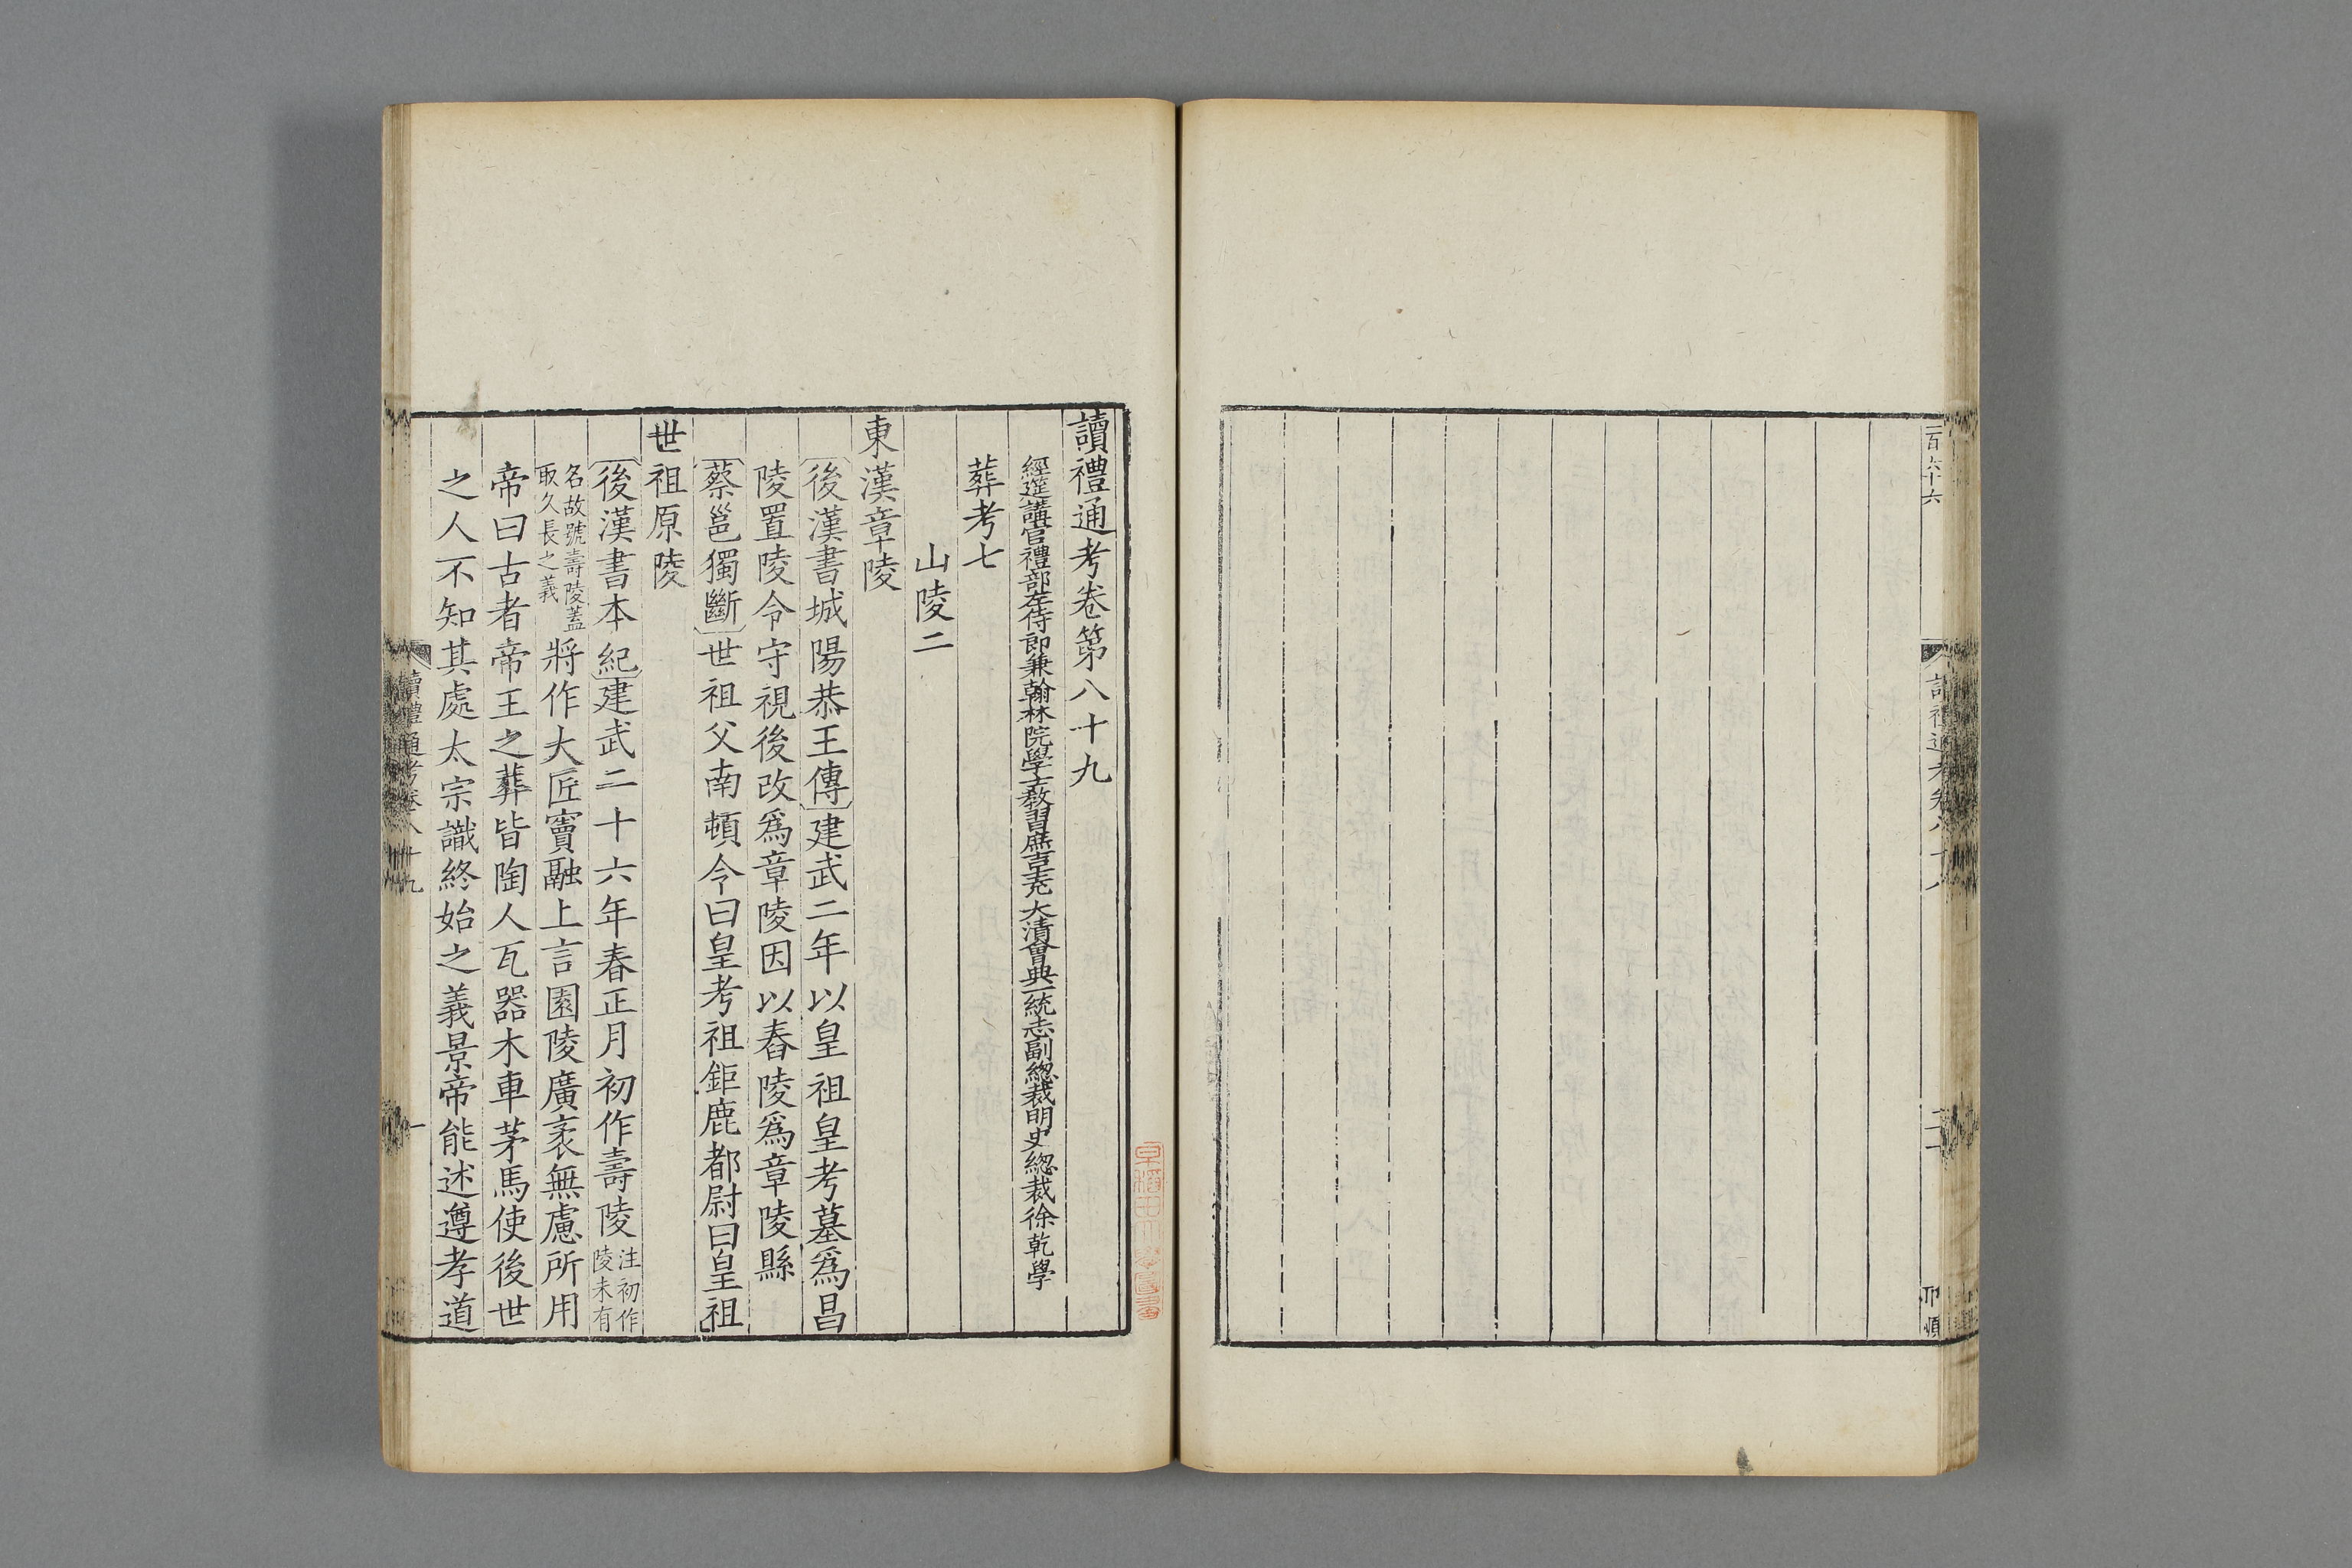 一百六十六
讀禮通考卷八十八
讀禮通考卷第八十九
經筵講官禮部左侍郎兼翰林院學士教習庶吉士充大清會典一統志副總裁明史總裁徐乾學
葬考七
山陵二
東漢章陵
後漢書城陽恭王傳建武二年以皇祖皇考墓爲昌
陵置陵令守視後改爲章陵因以舂陵爲章陵縣
蔡邕獨斷世祖父南頓令曰皇考祖鉅鹿都尉曰皇祖
世祖原陵
後漢書本紀建武二十六年春正月初作壽陵注初作陵未有
名故號壽陵蓋取久長之義將作大匠竇融上言園陵廣袤無慮所用
帝曰古者帝王之葬皆陶人瓦器木車茅馬使後世
之人不知其處太宗識終始之義景帝能述遵孝道
讀禮通考卷八十九
一